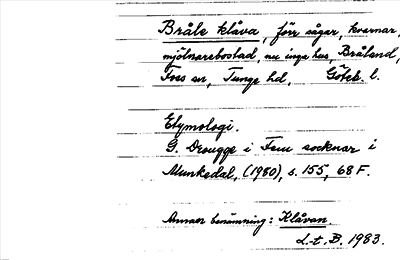 Bråle klåva, förr sågar, kvarnar,
mjölnarebostad, nu inga hus, Bråland,
Foss sn, Tunge hd, Göteb. l.
Etymologi.
G. Drougge i Fem socknar i
Munkedal, (1980), s. 155, 68 F.
Annan benämning: Klåvan.
L-t, B. 1983.